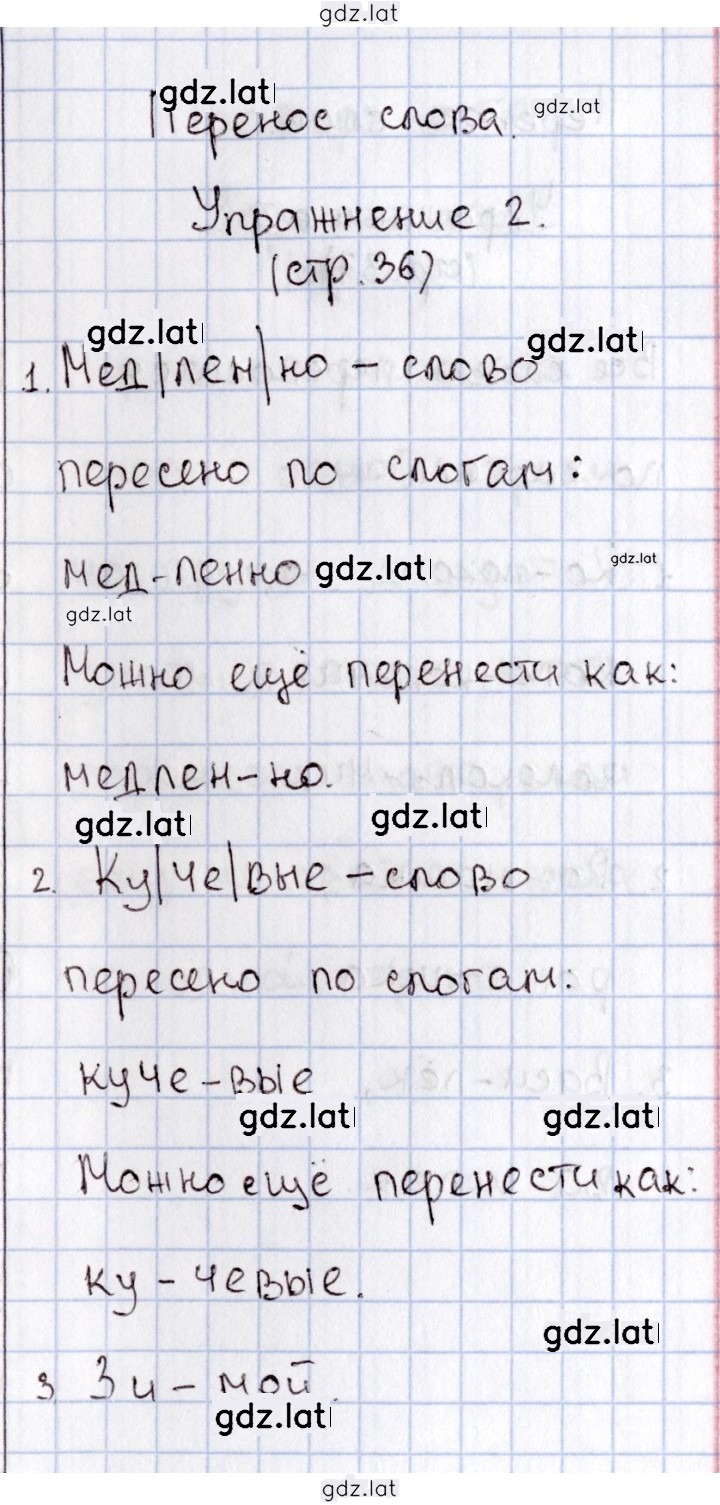 gdz.lat
gdz.lat
Перенос слова. gdz.lat
Упражнение 2.
(стр. 36)
gdz.lat gdz.lat
1. Мед|лен|но - слово
пересено по слогам:
мед-ленно gdz.lat gdz.lat
gdz.lat
Можно ещё перенести как:
медлен-но.
gdz.lat gdz.lat
2. Ку|че|вые - слово
пересено по слогам:
куче-вые
gdz.lat gdz.lat
Можно ещё перенести как:
ку-чевые.
gdz.lat
3. Зи-мой.
gdz.lat
gdz.lat